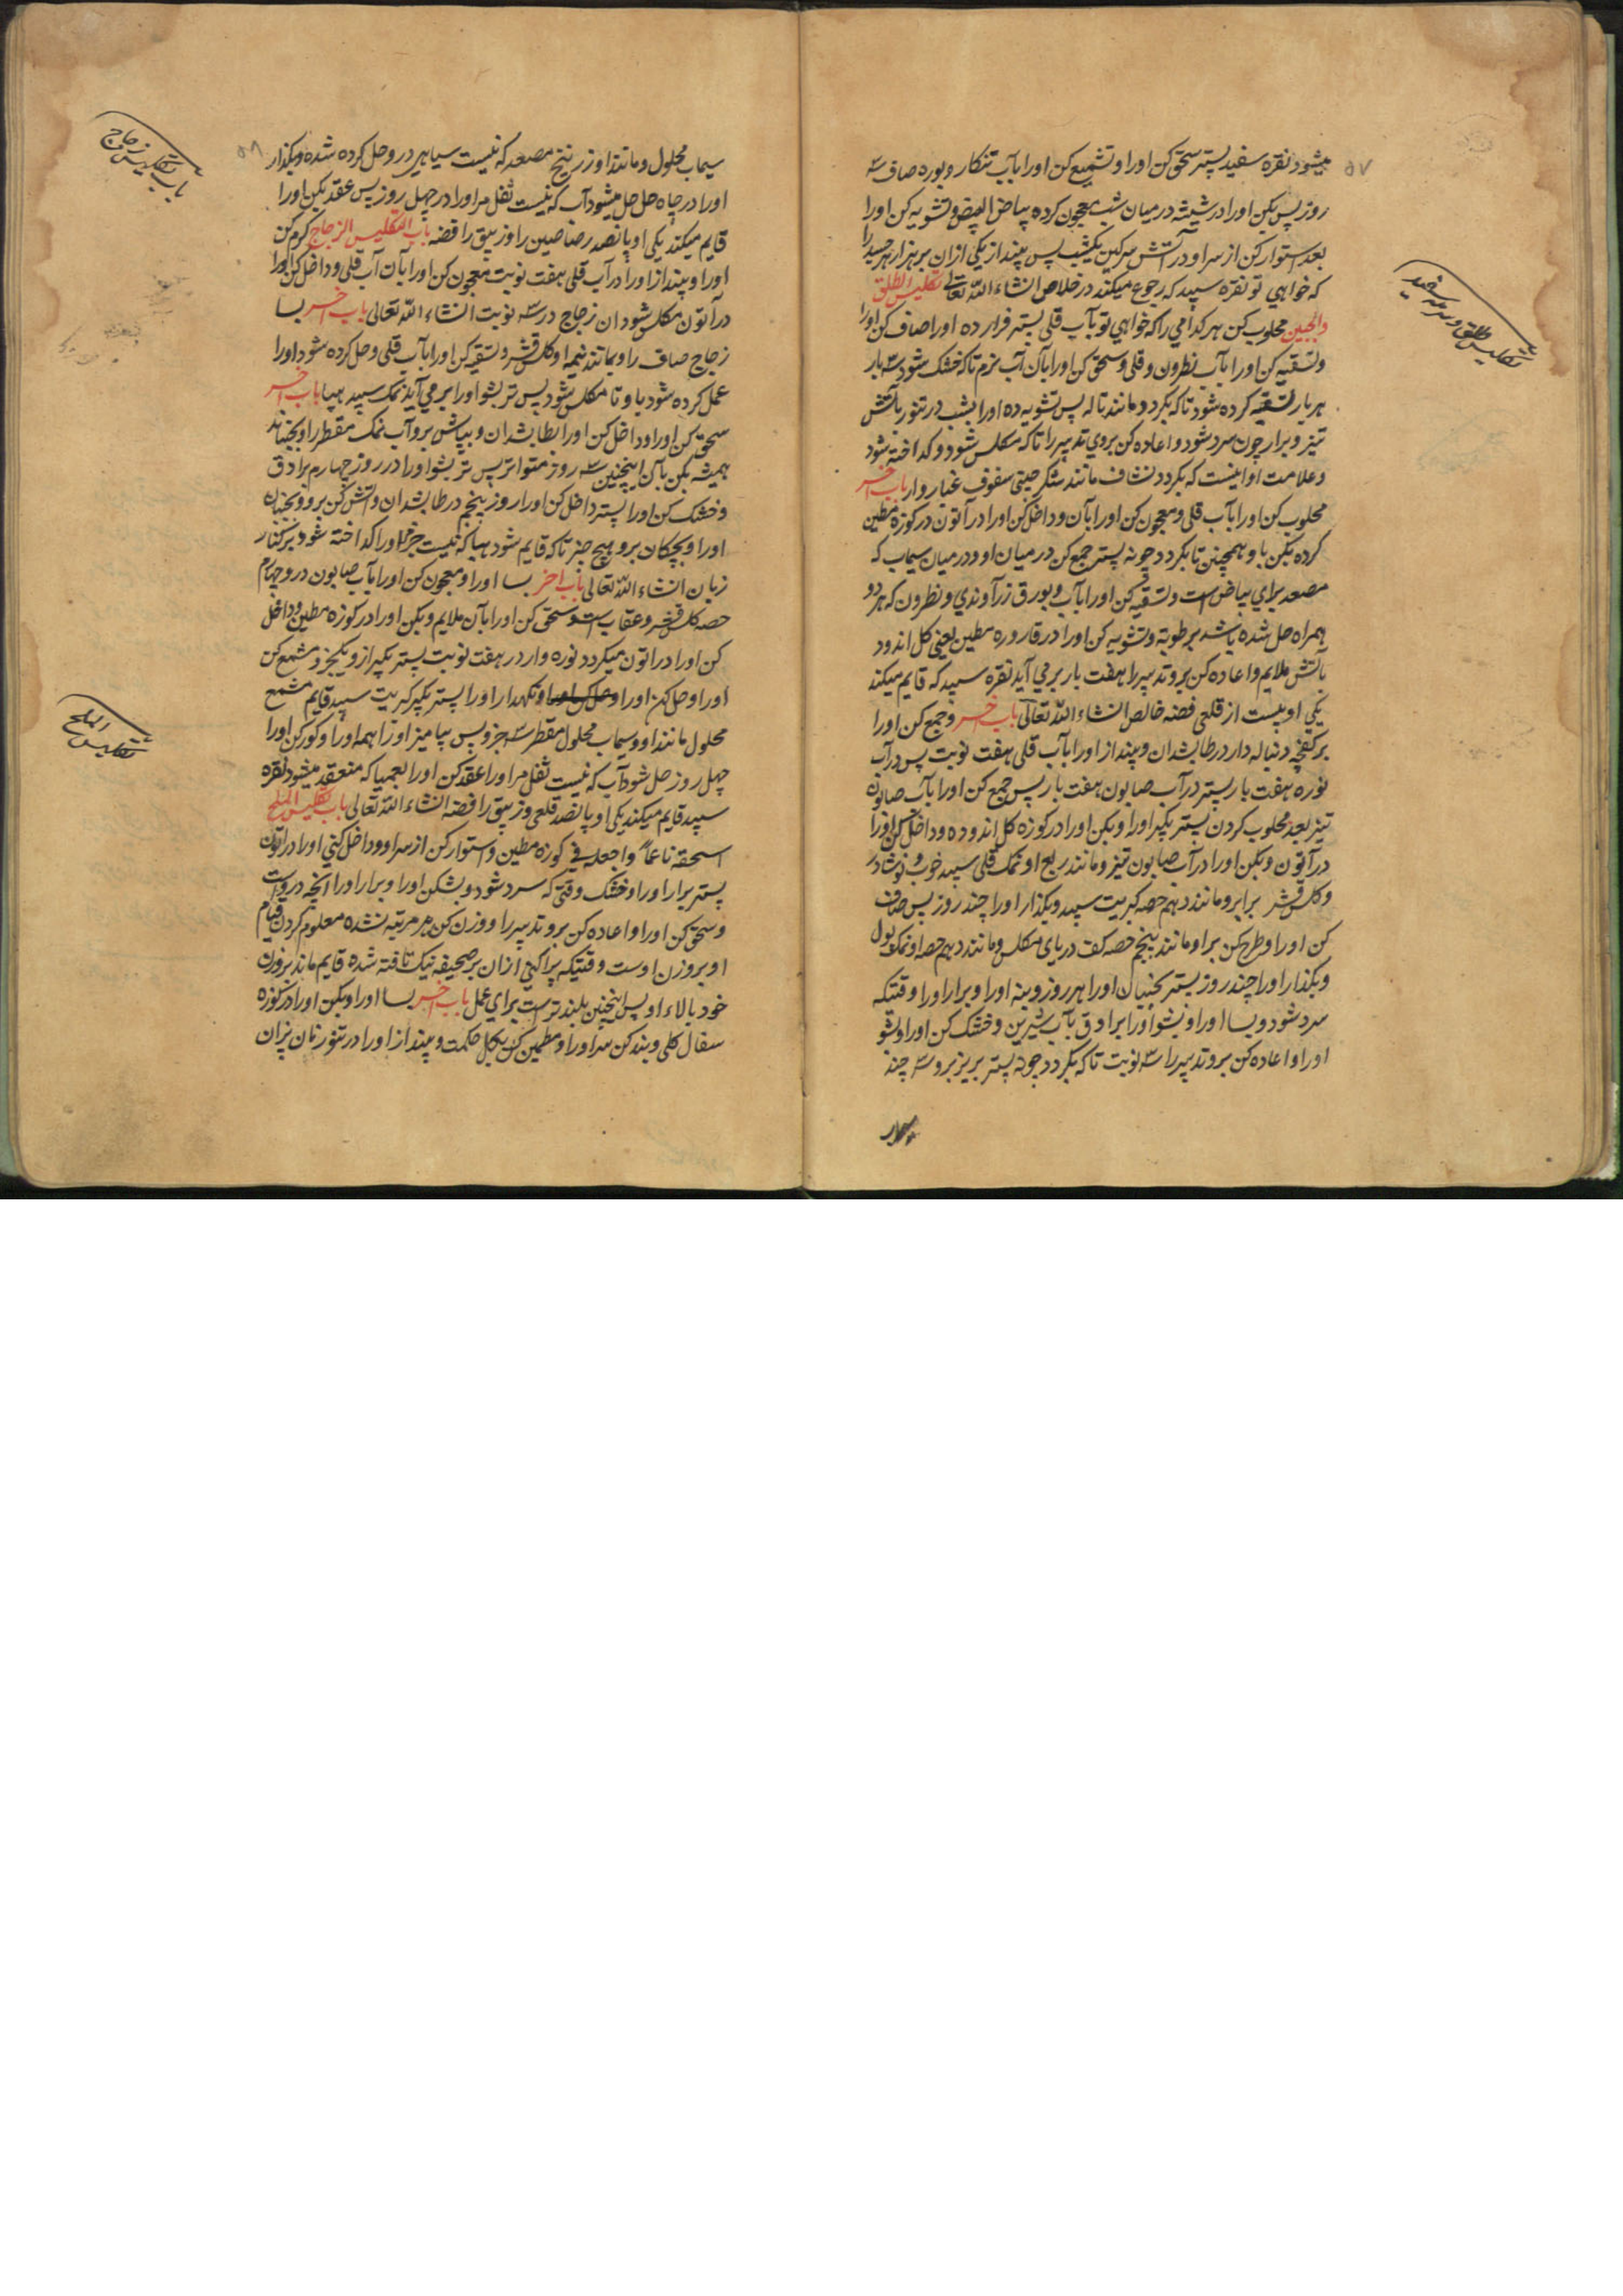 ۵۷
میشود نقره سفید پستر سحق کن اورا و تشمیع کن اورا بآب تنکار و بوره صاف سه
روز پس بکن اورا در شیشه در میان شب معجون کرده بیاض البیض و تشویه کن اورا
بعد استوار کن از سر او در آتش سرکین یکشب پس بینداز یکی ازان بر هزار هر جسد را
که خواهی تو نقره سپید که رجوع میکند در خلاص انشاء الله تعالی تکلیس الطلق
والجبین محلوب کن هر کدامی را که خواهی تو بآب قلی پستر قرار ده اورا صاف کن اورا
وتسقیه کن اورا بآب نطرون و قلی و سحق کن اورا بآن آب نرم تا که خشک شود سه بار
هر بار تسقیه کرده شود تا که بکردد مانند تاله پس تشویه ده اورا بشب در تنور بآتش
تیز و برار چون سرد شود و اعاده کن بروی تدبیر را تا که مکلس شود و کداخته شود
وعلامت او اینست که بکردد نشاف مانند شکر حبتی سفوف غباروار باب آخر
محلوب کن اورا بآب قلی و معجون کن اورا بآن و داخل کن اورا در آتون در کوزه مطین
کرده بکن باو همچنین تا بکردد چونه پستر جمع کن در میان او و در میان سیماب که
مصعد برای بیاض است و تسقیه کن اورا بآب و بورق زرآوندی و نطرون که هر دو
همراه حل شده باشد برطوبة و تشویه کن اورا در قاروره مطین یعنی کل اندود
بآتش ملایم و اعاده کن برو تدبیر را هفت بار بر می آید نقره سپید که قایم میکند
یکی او بیست از قلعی فضه خالص انشاء الله تعالی باب آخر وجمع کن اورا
بر کفچه دنباله دار در طابشدان و بینداز اورا بآب قلی هفت نوبت پس در آب
نوره هفت بار پستر در آب صابون هفت بار پس جمع کن اورا بآب صابون
تیز بعد محلوب کردن پستر بکیر اورا و بکن اورا در کوزه کل اندوده و داخل کن اورا
در آتون و بکن اورا در آب صابون تیز و مانند ربع او نمک قلی سپید خوب و نوشادر
و کلس قشر برابر و مانند دهم حصه کبریت سپید و بکذار اورا چند روز پس صاف
کن اورا و طرح کن بر او مانند پنجم حصه کف دریای مکلس و مانند دهم حصه او نمک بول
و بکذار اورا چند روز پستر بجنبان اورا هر روز و بنه اورا و برار اورا وقتیکه
سرد شود و بسا اورا و بشو اورا بر اوق بآب شیرین و خشک کن اورا و بشو
اورا و اعاده کن برو تدبیر را سه نوبت تا که بکردد چونه پستر بریز برو سه چند
سیماب
تکلیس طلق
۵۸
سیماب محلول و مانند او زرنیخ مصعد که نیست سیاهی در و حل کرده شده و بکذار
اورا در چاه حل حل میشود آب که نیست ثفل مر اورا در چهل روز پس عقد بکن اورا
قایم میکند یکی او پانصد رصاصین را و زیبق را فضه باب التکلیس الزجاج کرم کن
اورا و بینداز اورا در آب قلی هفت نوبت معجون کن اورا بآن آب قلی و داخل کن اورا
در آتون مکلس شود ان زجاج در سه نوبت انشاء الله تعالی باب آخر بسا
زجاج صاف را و بمانند نیمه او کلس قشر و تسقیه کن اورا بآب قلی و حل کرده شود اورا
عمل کرده شود باو تا مکلس شود پس تر بشو اورا بر می آید نمک سپید هبا باب آخر
سحق کن اورا و داخل کن اورا بطابشدان و بپاش برو آب نمک مقطر را و بجنباند
همیشه بکن بآن اینچنین سه روز متواتر پس تر بشو اورا در روز چهارم براوق
و خشک کن اورا پستر داخل کن اورا روز پنجم در طابشدان و آتش کن برو و بجنبان
اورا و بچکان برو هیچ چیز تا که قایم شود هبا که نیست جزء اورا کداخته شود بر کنار
زبان انشاء الله تعالی باب آخر بسا اورا و معجون کن اورا بآب صابون در و چهارم
حصه کلس قشر و عقاب است و سحق کن اورا بآن ملایم و بکن اورا در کوزه مطین و داخل
کن اورا در اتون میکردد نوره وار در هفت نوبت پستر بکیر از و یکجزء مشمع کن
اورا و حل کن اورا و نکهدار اورا پستر بکیر کبریت سپید قایم مشمع
محلول مانند او و سیماب محلول مقطر سه جزء پس بیامیز اورا همه اورا و کور کن اورا
چهل روز حل شود آب که نیست ثفل مر اورا عقد کن اورا بعمیا که منعقد میشود نقره
سپید قایم میکند یکی او پانصد قلعی و زیبق را فضه انشاء الله تعالی باب تکلیس الملح
اسحقه ناعماً واجعله فی کوزه مطین و استوار کن از سر او و داخل کنی اورا در اتون
پستر برار اورا و خشک وقتی که سرد شود و بشکن اورا و برار اورا انچه در وست
و سحق کن اورا و اعاده کن برو تدبیر را و وزن کن هر مرتبه نشده معلوم کردن قیام
او بروزن اوست وقتیکه پراکنی ازان بر صحیفه نیک تافته شده قایم ماند بروزن
خود بالاء او پس اینچنین بلندتر است برای عمل باب آخر بسا اورا و بکن اورا در کوزه
سفال کلی و بند کن سر اورا و مطین کن بکل حکمت و بینداز اورا در تنور نان پزان
باب تکلیس زجاج
تکلیس الملح